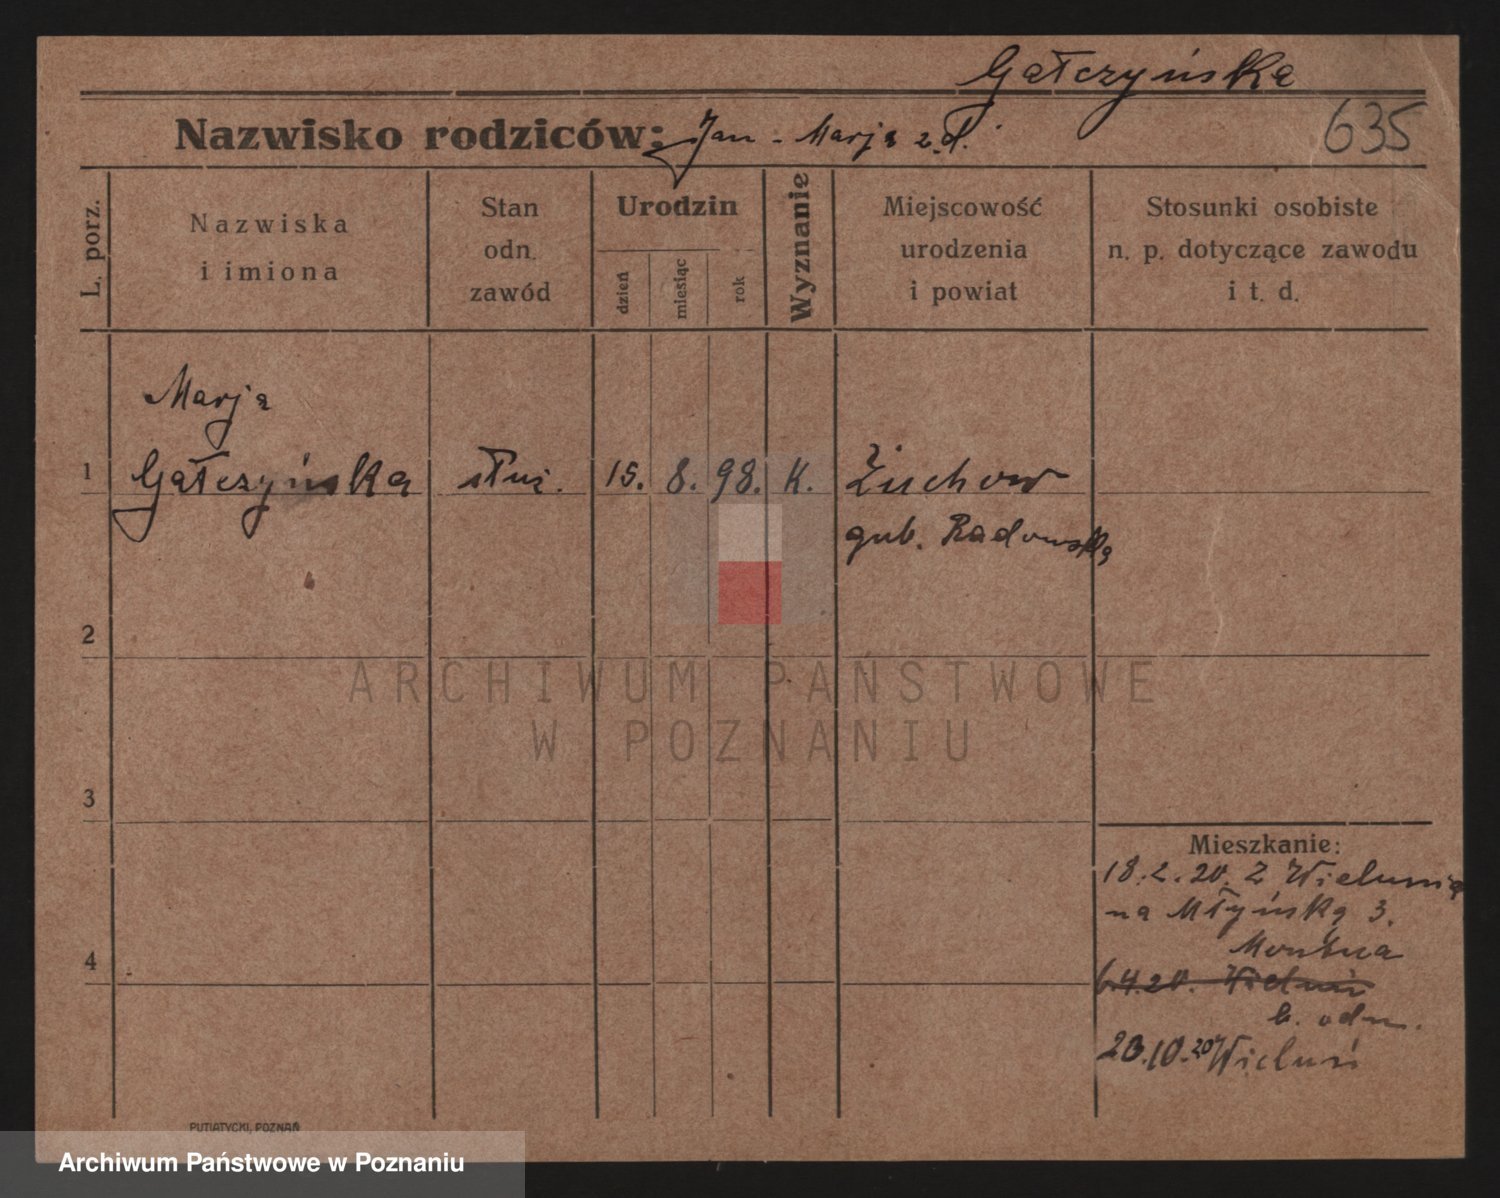 Gałczyńska
635
Nazwisko rodziców: Jan - Marja z d.
L. porz.
Nazwiska
i imiona
Stan
odn.
zawód
Urodzin
dzień
miesiąc
rok
Wyznanie
Miejscowość
urodzenia
i powiat
Stosunki osobiste
n. p. dotyczące zawodu
i t. d.
Marja
1 Gałczyńska służ. 15. 8. 98. K. Żuchow
gub. Radomska
2
3
4
Mieszkanie:
18.2.20. Z Wielunia
na Młyńską 3.
6.4.20. Wieluń
b. odm.
23.10.20 Wieluń
PUTIATYCKI, POZNAŃ
ARCHIWUM PAŃSTWOWE
W POZNANIU
Archiwum Państwowe w Poznaniu